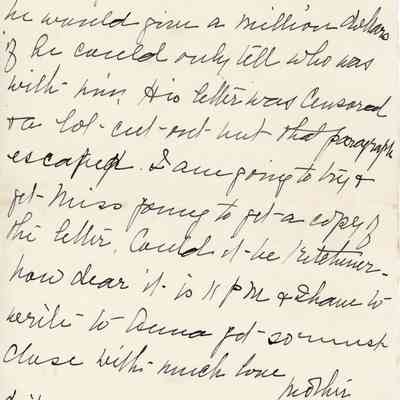 he would give a million dollars
if he could only tell who was
with him. His letter was Censored
& a lot- cut-out but that paragraph
escaped. I am going to try &
get- Miss young to get- a copy of
the letter. Could it- be Kitchener-
now dear it- is 11 PM & I have to
write to Anna yet- so must
close with- much love
Mother